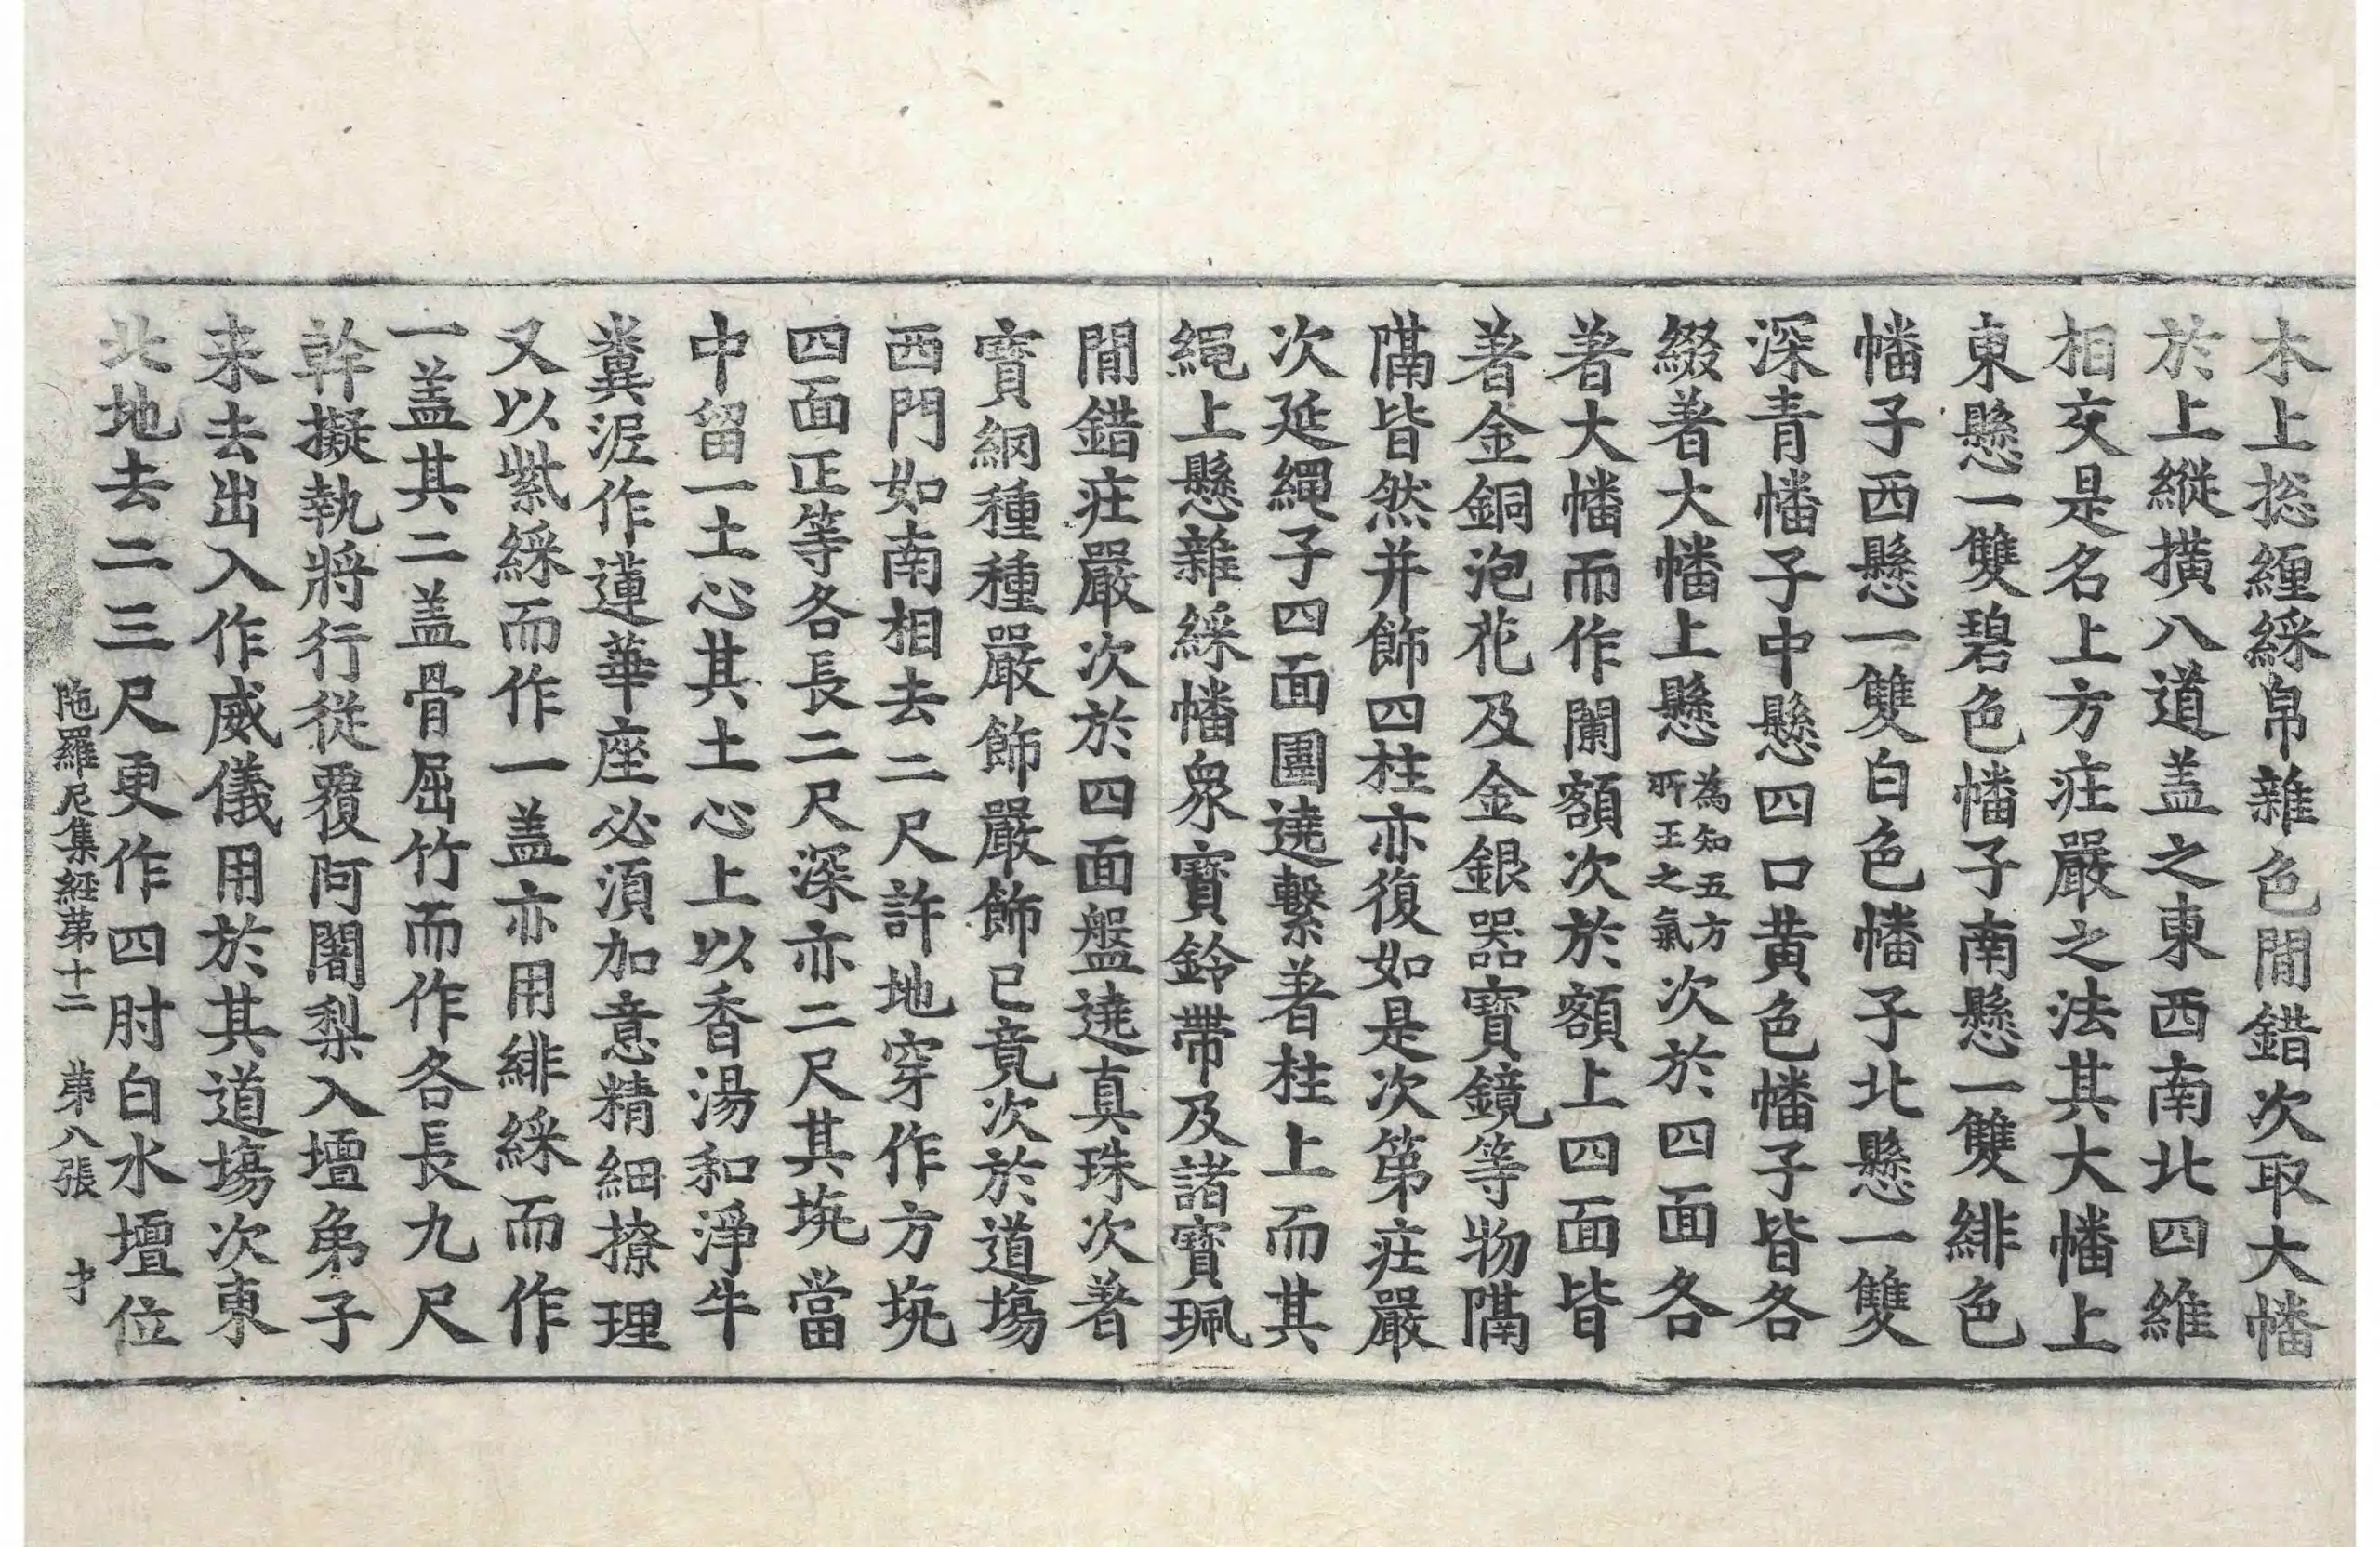 木上捴纏綵帛雜色閒錯次取大幡
於上縱撗八道盖之東西南北四維
相交是名上方疘嚴之法其大幡上
東懸一雙碧色幡子南懸一雙緋色
幡子西懸一雙白色幡子北懸一雙
深青幡子中懸四口黄色幡子皆各
綴著大幡上懸為知五方所王之氣次於四面各
著大幡而作闌額次於額上四面皆
著金銅泡花及金銀器寶鏡等物隔
隔皆然并飾四柱亦復如是次第疘嚴
次延繩子四面圍遶繫著柱上而其
繩上懸雜綵幡衆寶鈴帶及諸寶珮
閒錯疘嚴次於四面盤遶真珠次著
寳網種種嚴飾嚴飾已竟次於道場
西門如南相去二尺許地穿作方坑
四面正等各長二尺深亦二尺其坑當
中留一土心其土心上以香湯和淨牛
糞泥作蓮華座必湏加意精細撩理
又以紫綵而作一盖亦用緋綵而作
一盖其二盖骨屈竹而作各長九尺
幹擬執將行從覆阿闍梨入壇弟子
来去出入作威儀用於其道場次東
北地去二三尺更作四肘白水壇位
陁羅尼集經第十二 第八張 才